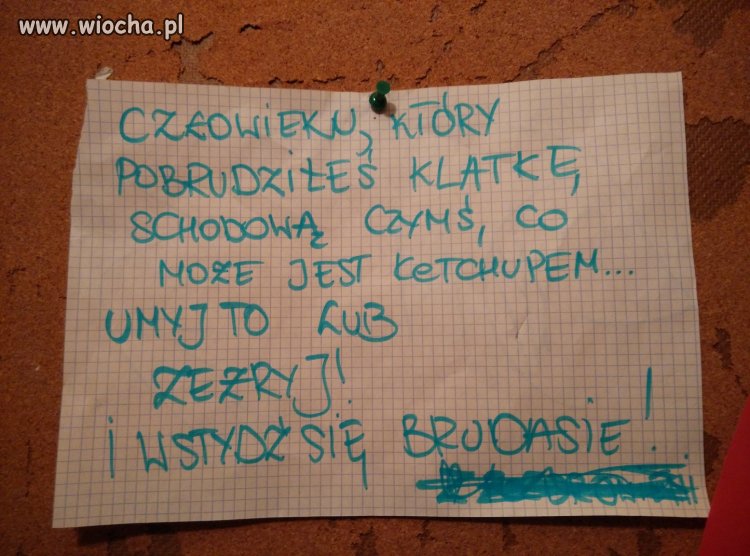 www.wiocha.pl
CZŁOWIEKU, KTÓRY
POBRUDZIŁEŚ KLATKĘ
SCHODOWĄ CZYMŚ, CO
MOŻE JEST KETCHUPEM...
UMYJ TO LUB
ZEŻRYJ!
I WSTYDŹ SIĘ BRUDASIE!